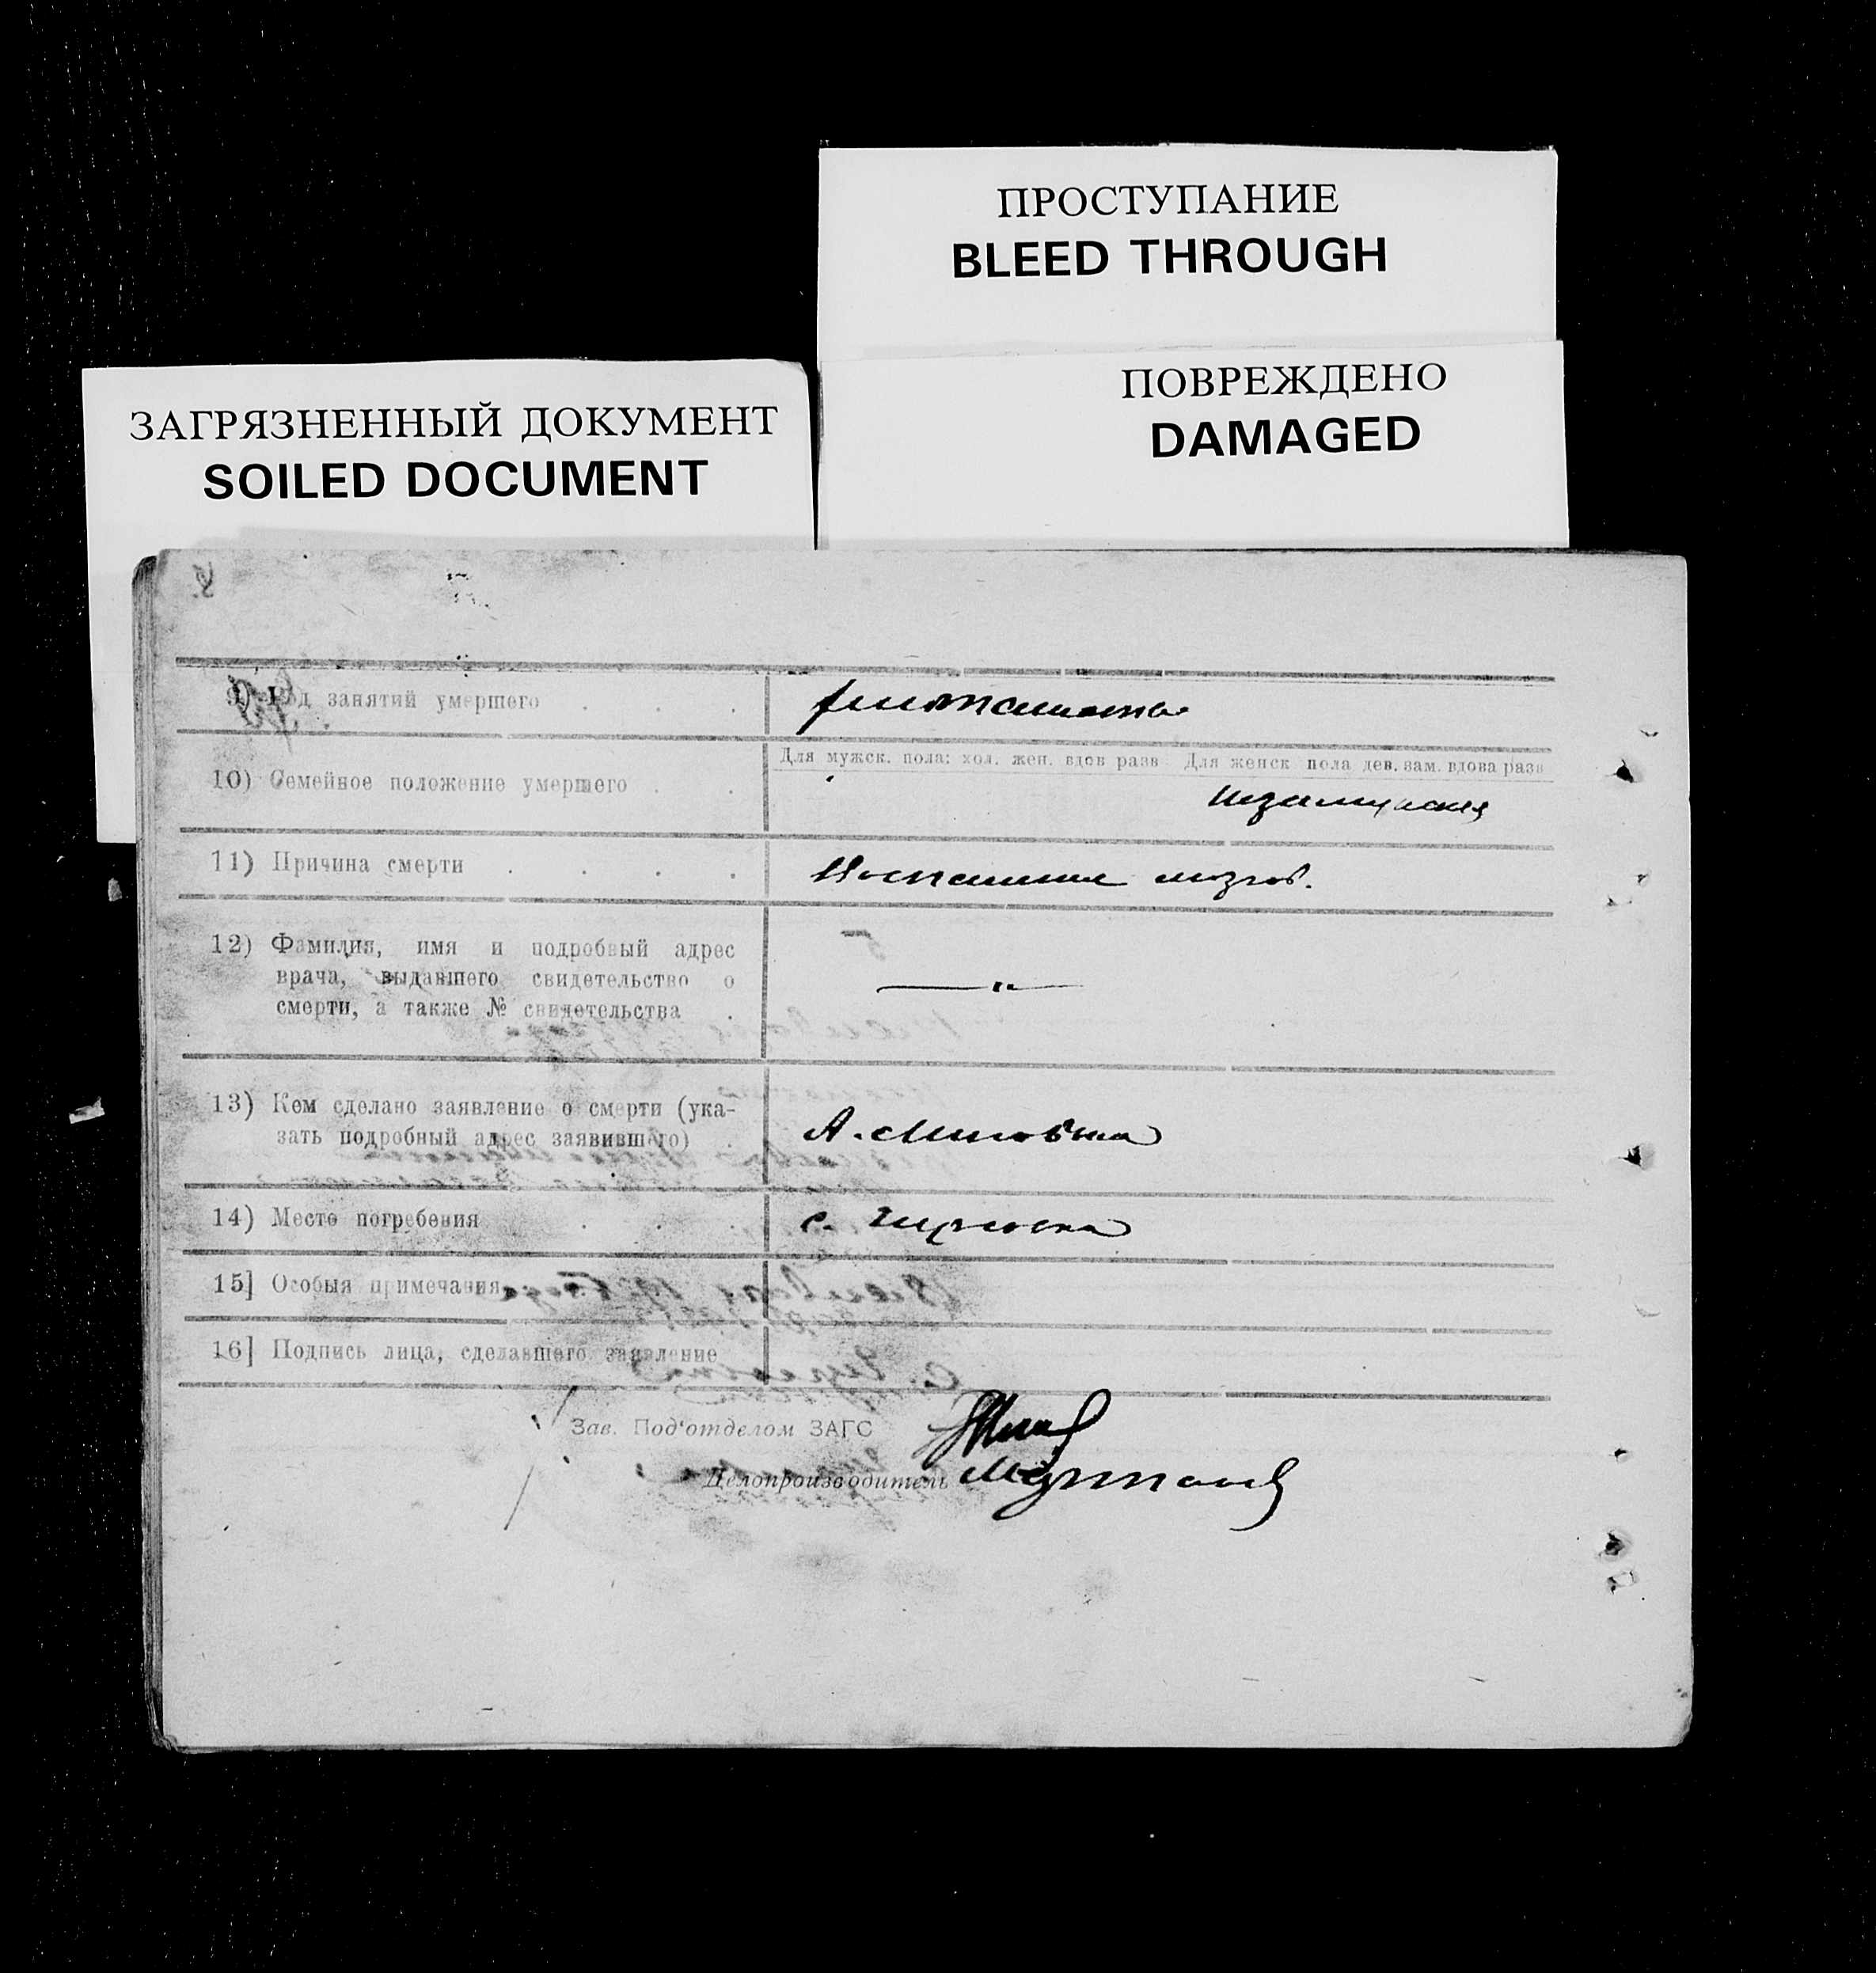 ПРОСТУПАНИЕ
BLEED THROUGH
ПОВРЕЖДЕНО
DAMAGED
ЗАГРЯЗНЕННЫЙ ДОКУМЕНТ
SOILED DOCUMENT
9) Род занятий умершего . . .
10) Семейное положение умершего . .
Для мужск. пола: хол. жен. вдов разв Для женск пола дев. зам. вдова разв
незамужняя
11) Причина смерти . . . .
Воспаление мозгов.
12) Фамилия, имя и подробный адрес
врача, выдавшего свидетельство о
смерти, а также № свидетельства .
13) Кем сделано заявление о смерти (ука-
зать подробный адрес заявившего) .
А.
14) Место погребения . . .
с.
15] Особыя примечания
16] Подпись лица, сделавшего заявление
Зав. Под'отделом ЗАГС
Делопроизводитель